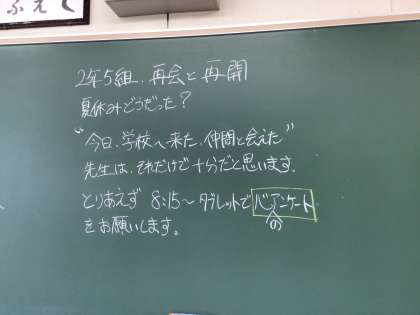 ふえて
2年5組、再会と再開
夏休みどうだった？
“今日、学校へ来た、仲間と会えた”
先生は、それだけで十分だと思います。
とりあえず 8:15〜 タブレットで 心のアンケート
をお願いします。